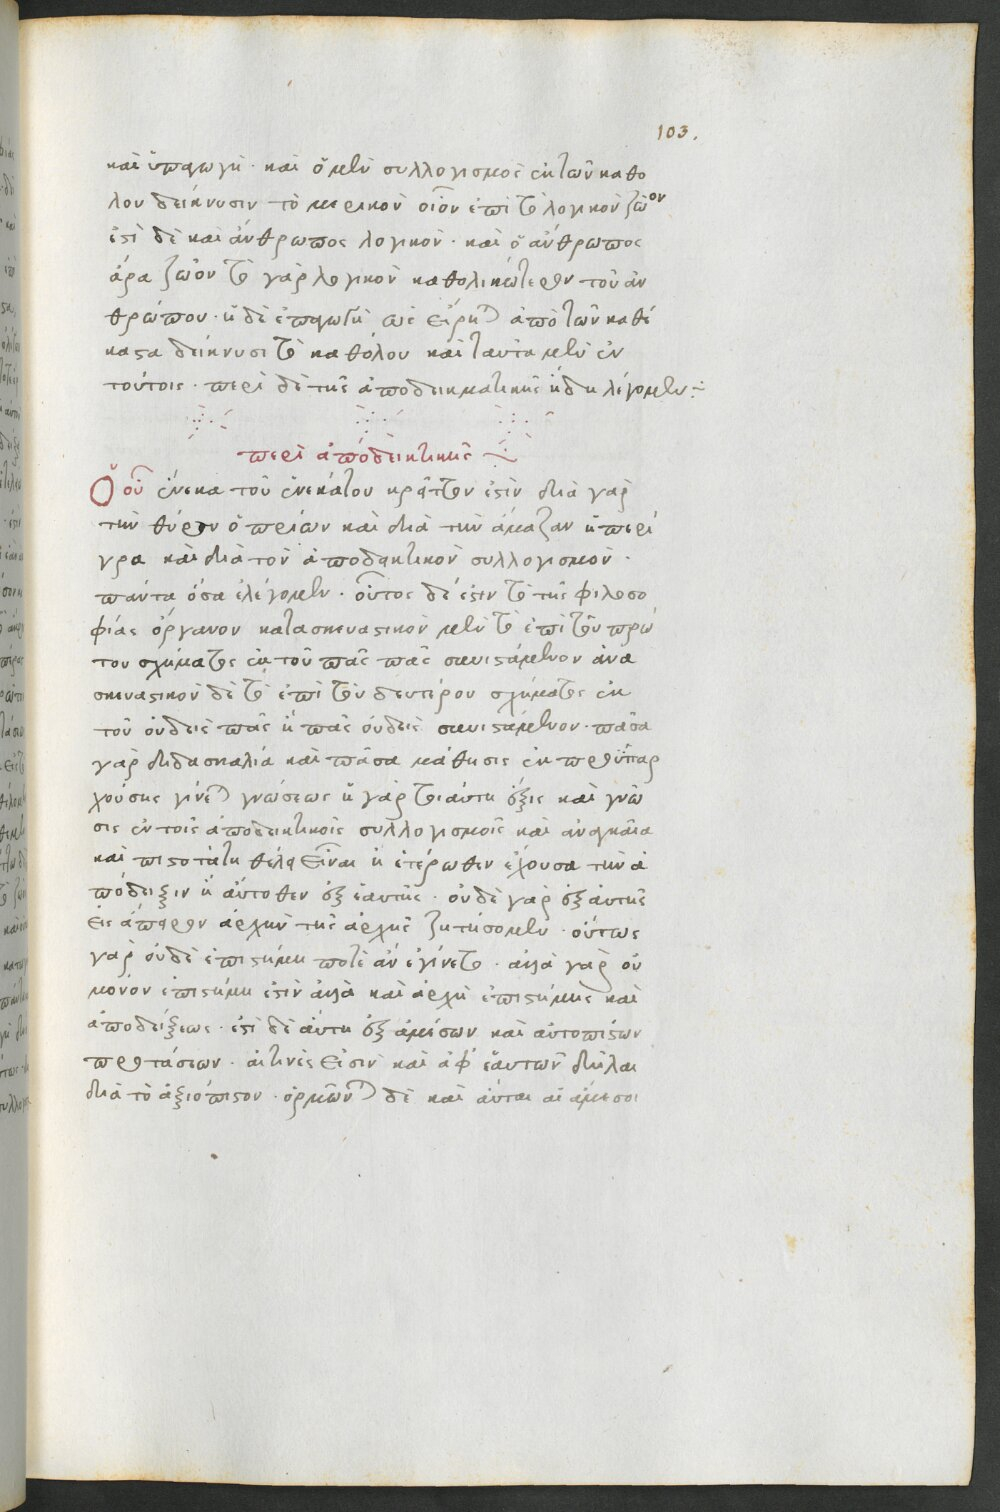 103.
καὶ ὑπαγωγή · καὶ ὁ μὲν συλλογισμὸς ἐκ τῶν καθο
λου δείκνυσιν τὸ μερικόν οἷον ἐπὶ τὸ λογικὸν ζῶον
ἐστὶ δὲ καὶ ἄνθρωπος λογικόν · καὶ ὁ ἄνθρωπος
ἄρα ζῶον τὸ γὰρ λογικὸν καθολικώτερον τοῦ ἀν
θρώπου · ἡ δὲ ἐπαγωγὴ ὡς εἴρηται ἀπὸ τῶν καθέ
καστα δείκνυσι τὸ καθόλου καὶ ταῦτα μὲν ἐν
τούτοις · περὶ δὲ τῆς ἀποδεικματικῆς ἤδη λέγομεν :
περὶ ἀποδεικτικῆς
Ὃ οὗ ἕνεκα τοῦ ἕνεκά του κρᾶττον ἐστὶν διὰ γὰρ
τὴν θύραν ὁ πρίων καὶ διὰ τὴν ἅμαξαν ἡ περί
γρα καὶ διὰ τὸν ἀποδεικτικὸν συλλογισμὸν ·
πάντα ὅσα ἐλέγομεν · οὗτος δέ ἐστιν τὸ τῆς φιλοσο
φίας ὄργανον κατασκευαστικὸν μὲν τὸ ἐπὶ τοῦ πρώ
του σχήματος ἐκ τοῦ πᾶς πᾶς συνιστάμενον ἀνα
σκευαστικὸν δὲ τὸ ἐπὶ τοῦ δευτέρου σχήματος ἐκ
τοῦ οὐδεὶς πᾶς ἢ πᾶς οὐδεὶς συνιστάμενον · πᾶσα
γὰρ διδασκαλία καὶ πᾶσα μάθησις ἐκ προϋπαρ
χούσης γίνεται γνώσεως ἡ γὰρ τοιαύτη ἕξις καὶ γνῶ
σις ἐν τοῖς ἀποδεικτικοῖς συλλογισμοῖς καὶ ἀναγκαία
καὶ πιστοτάτη θέλει εἶναι ἢ ἑτέρωθεν ἔχουσα τὴν ἀ
πόδειξιν ἢ αὐτόθεν ἐξ ἑαυτῆς · οὐδὲ γὰρ ἐξ αὐτῆς
εἰς ἄπειρον ἀρχὴν τῆς ἀρχῆς ζητήσομεν · οὕτως
γὰρ οὐδὲ ἐπιστήμη ποτὲ ἂν ἐγίνετο · ἀλλὰ γὰρ οὐ
μόνον ἐπιστήμη ἐστὶν ἀλλὰ καὶ ἀρχὴ ἐπιστήμης καὶ
ἀποδείξεως · ἐστὶ δὲ αὕτη ἐξ ἀμέσων καὶ αὐτοπίστων
προτάσεων · αἵτινές εἰσιν καὶ ἀφ' ἑαυτῶν δῆλαι
διὰ τὸ ἀξιόπιστον · ὁρμῶνται δὲ καὶ αὗται αἱ ἄμεσοι